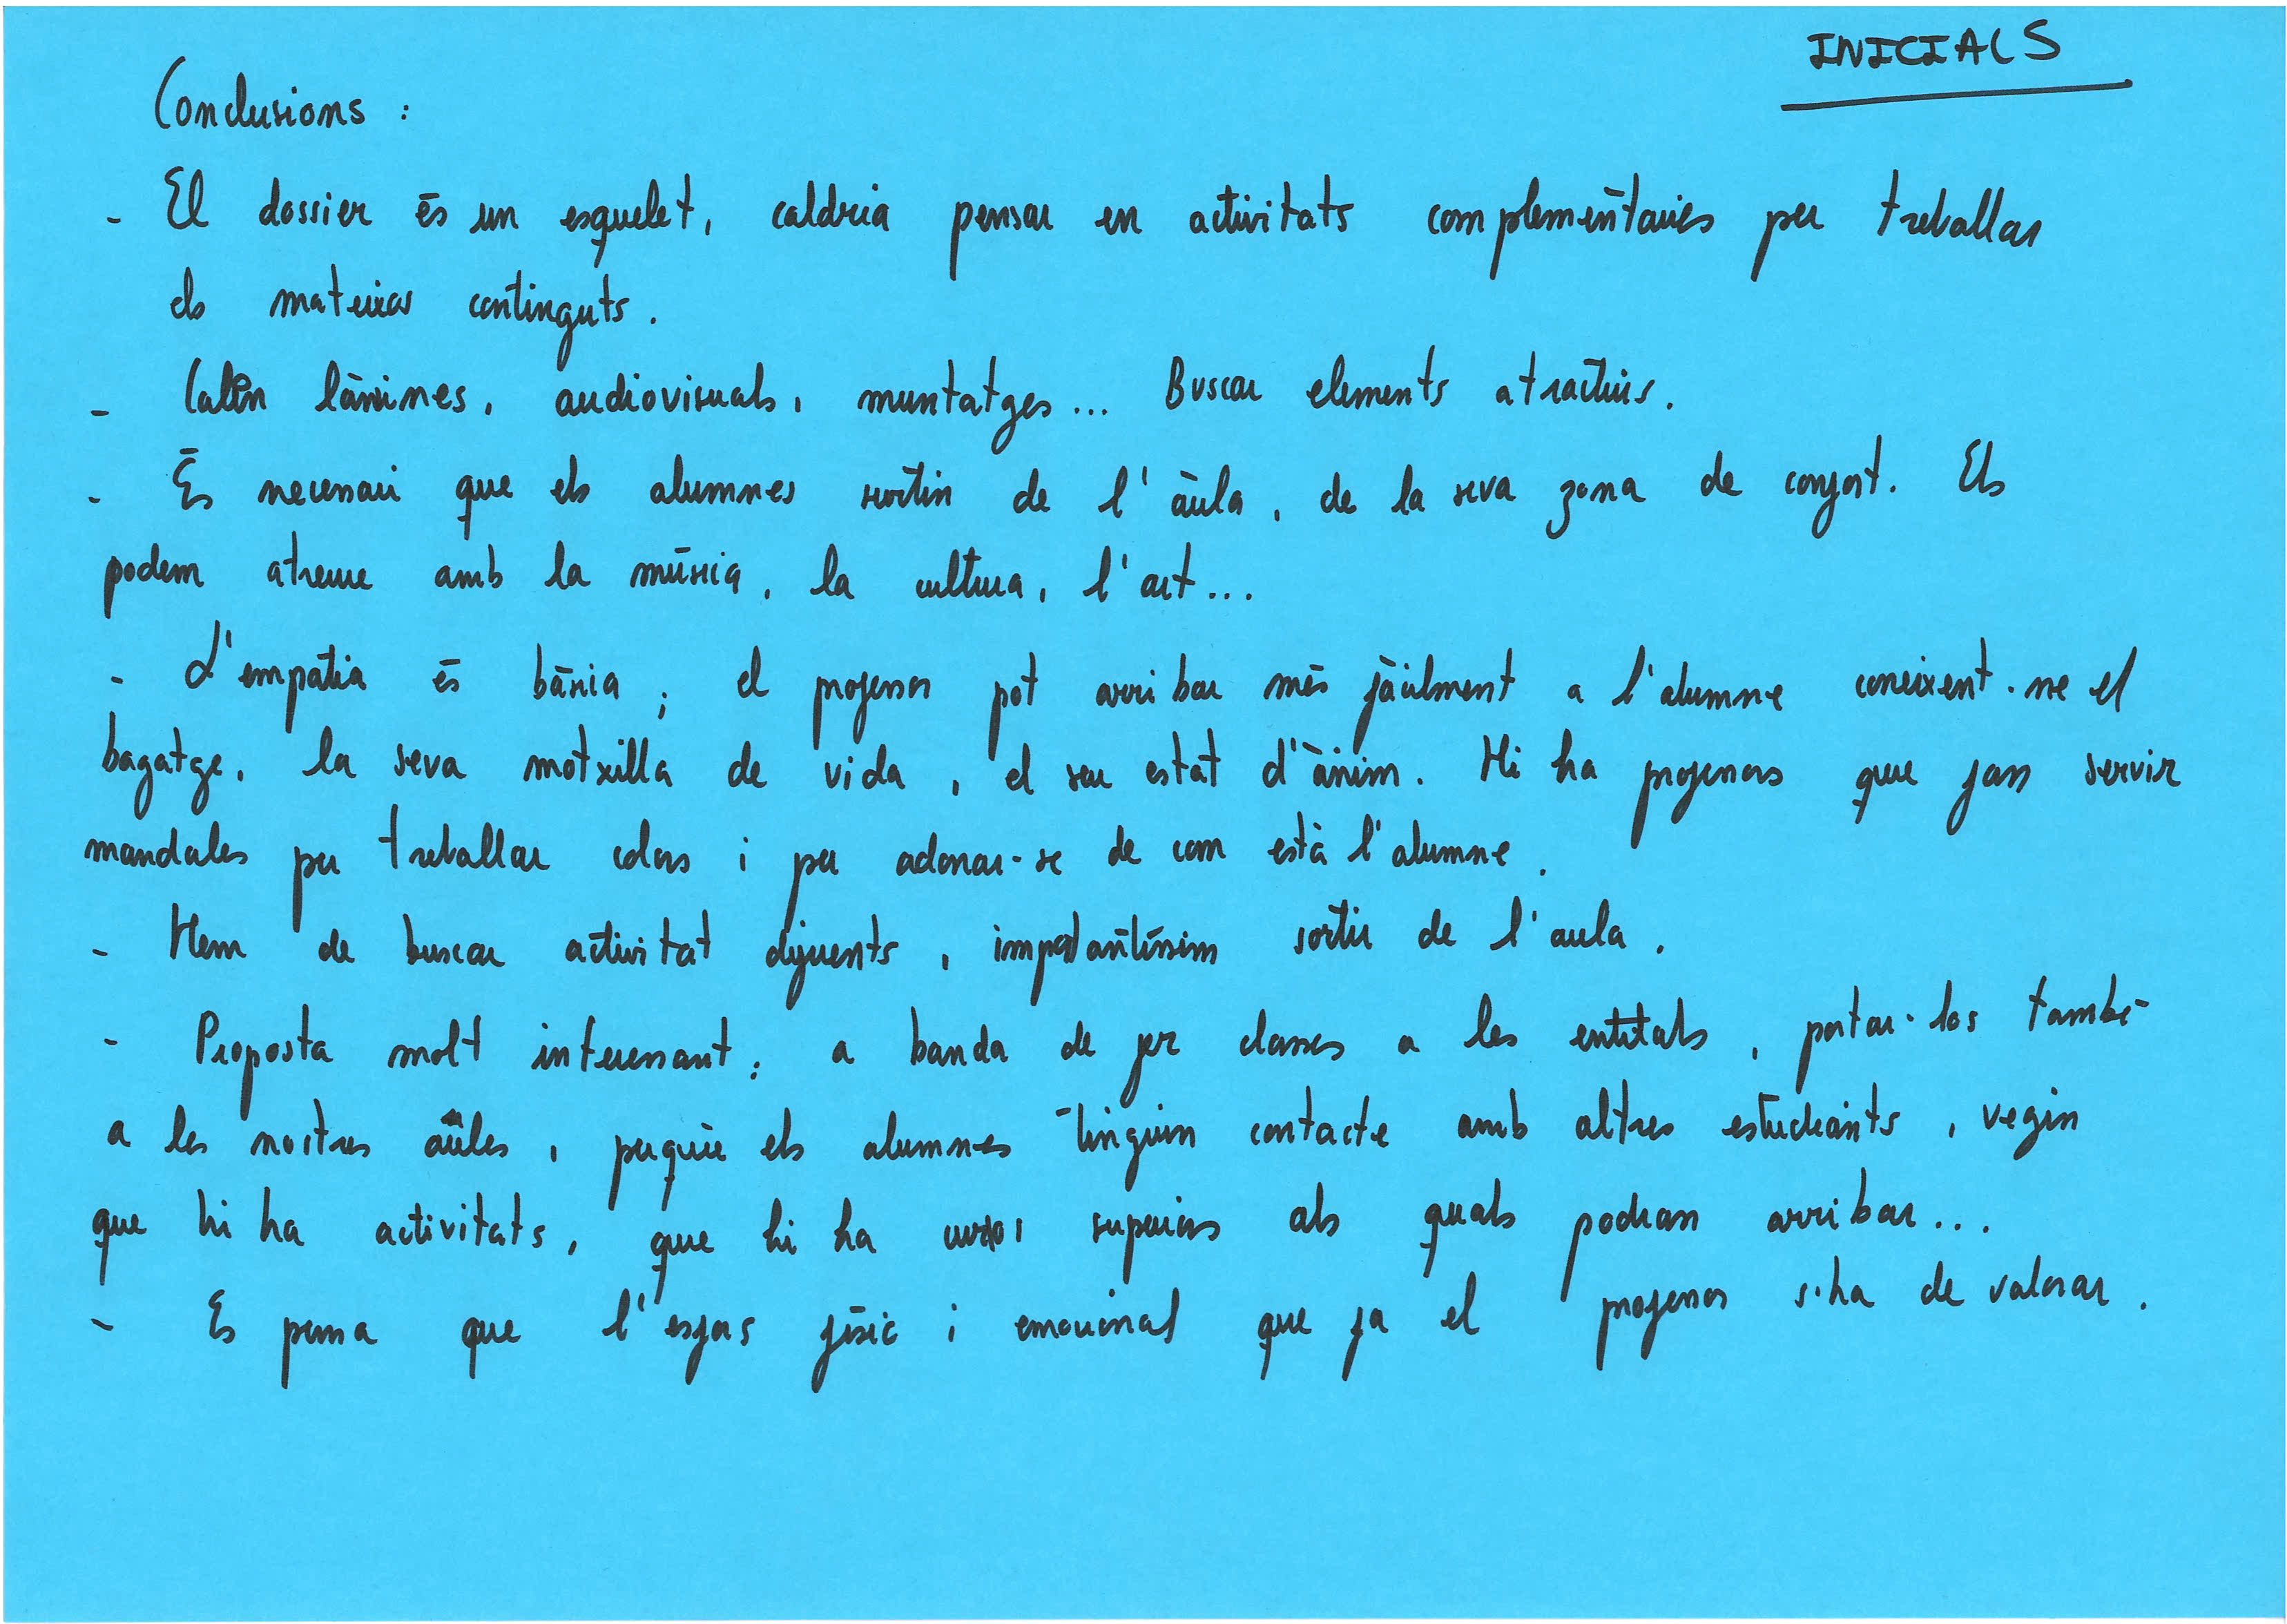 INICIALS
Conclusions :
- El dossier és un esquelet, caldria pensar en activitats complementàries per treballar
els mateixos continguts.
- Calen làmines, audiovisuals, muntatges... Buscar elements atractius.
- És necessari que els alumnes surtin de l'àula, de la seva zona de confort. Els
podem atreure amb la música, la cultura, l'art...
- L'empatia és bàsica ; el professor pot arribar més fàcilment a l'alumne coneixent-ne el
bagatge, la seva motxilla de vida, el seu estat d'ànim. Hi ha professors que fan servir
mandales per treballar colors i per adonar-se de com està l'alumne.
- Hem de buscar activitat diferents, importantíssim sortir de l'aula.
- Proposta molt interessant: a banda de fer classes a les entitats, portar-los també
a les nostres aules, perquè els alumnes tinguin contacte amb altres estudiants, vegin
que hi ha activitats, que hi ha cursos superiors als quals podran arribar...
- Es pensa que l'esforç físic i emocional que fa el professor s'ha de valorar.